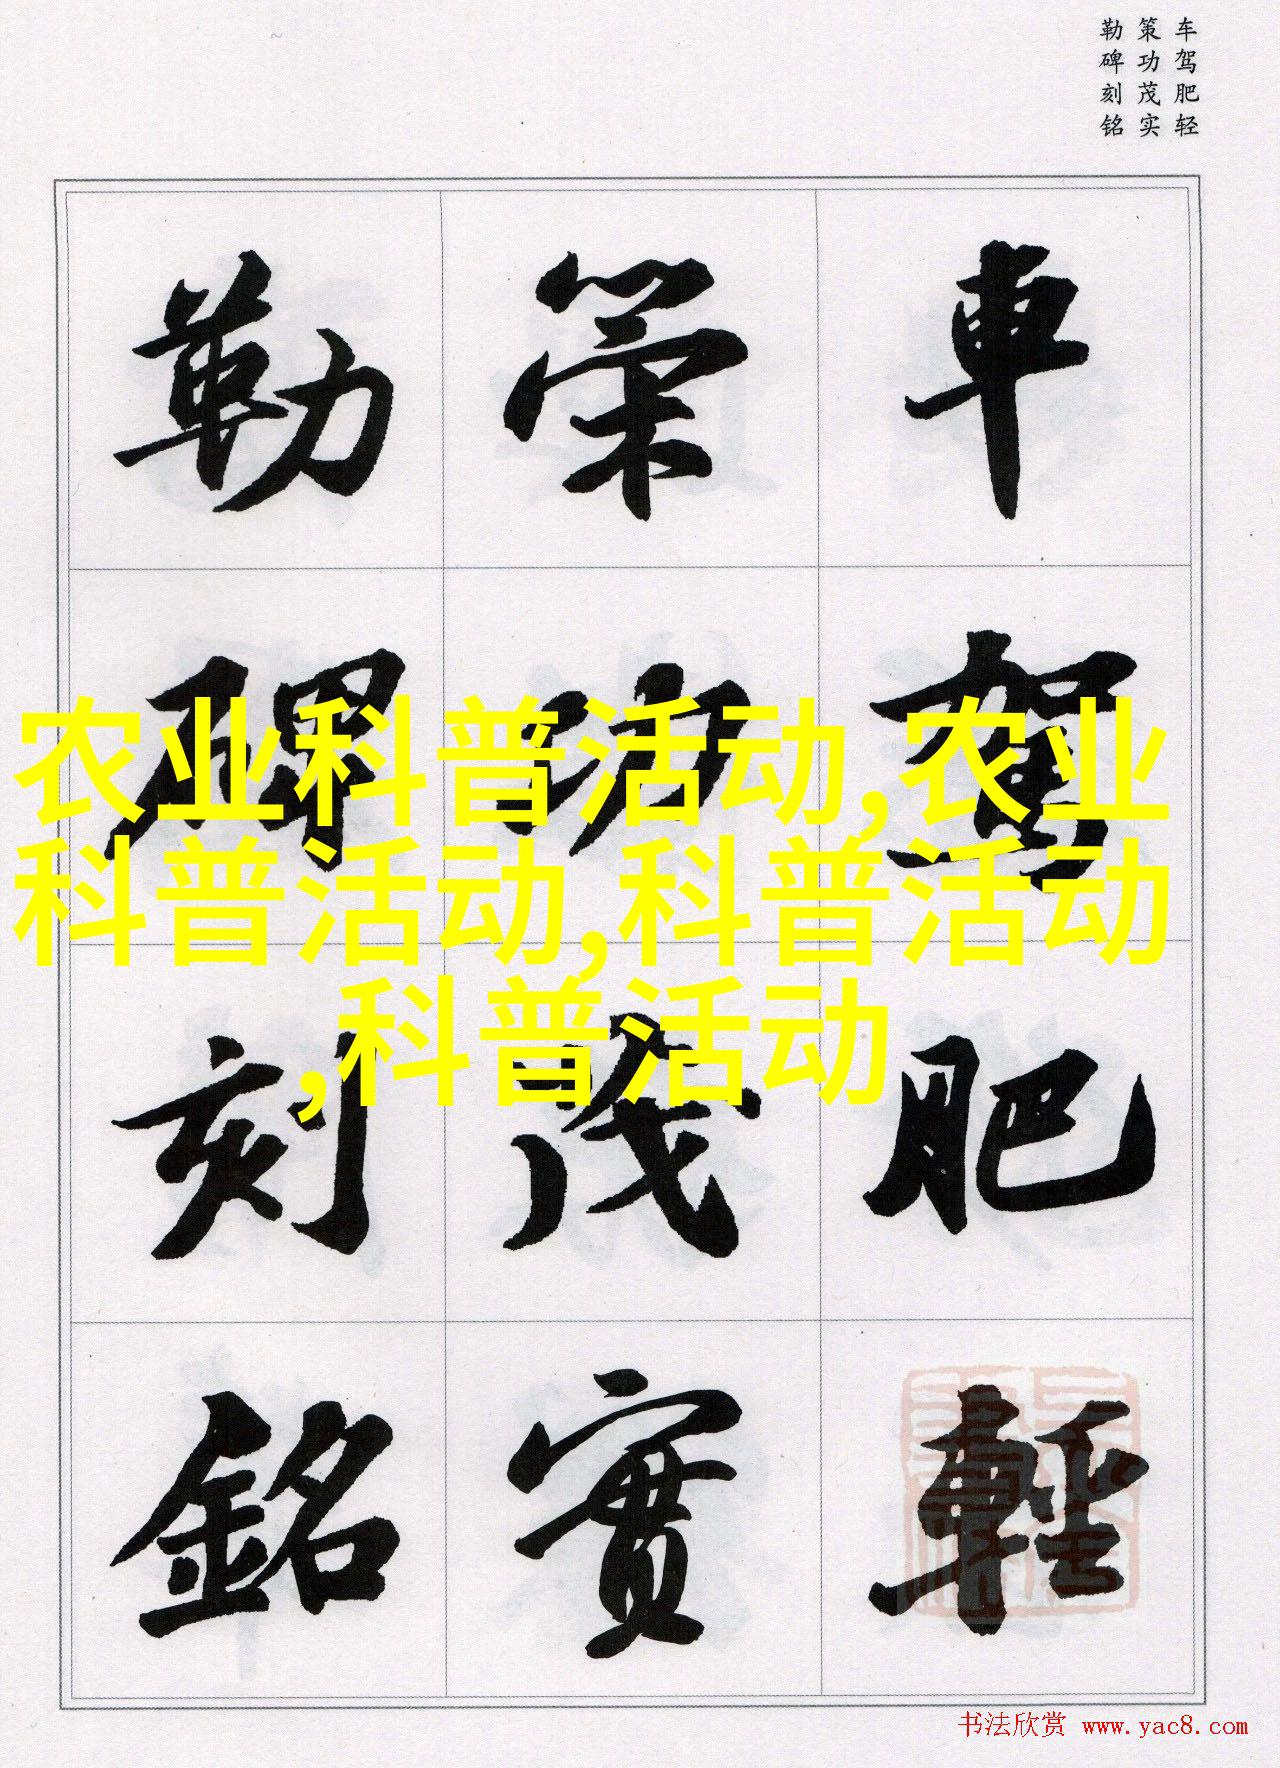 车驾肥轻
策功茂实
勒碑刻铭
車駕肥輕
策功茂實
勒碑刻銘
农业科普活动,农业
科普活动,科普活动
,科普活动
书法欣赏 www.yac8.com